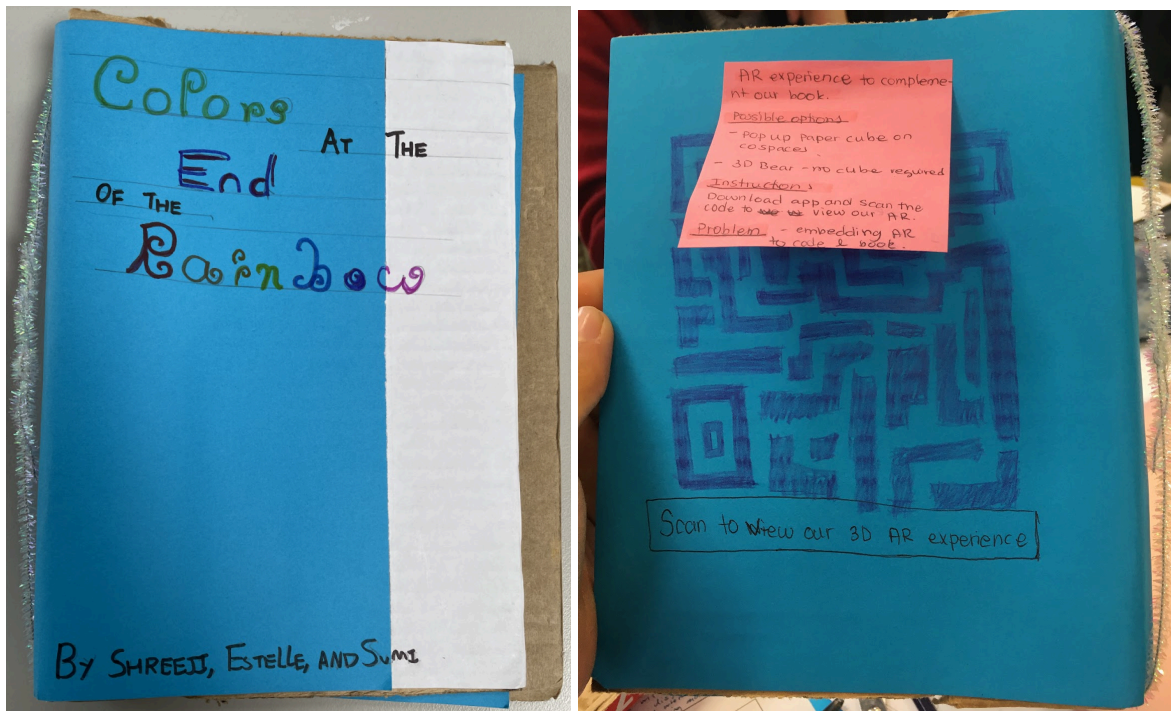 Colors
AT THE
End
OF THE
Rainbow
BY SHREEJI, ESTELLE, AND SUMI
AR experience to compleme-
nt our book.
Possible options
- Pop up Paper cube on
cospaces.
- 3D Bear - no cube required
Instructions
Download app and scan the
code to view our AR.
Problem - embedding AR
to code & book.
Scan to View our 3D AR experience